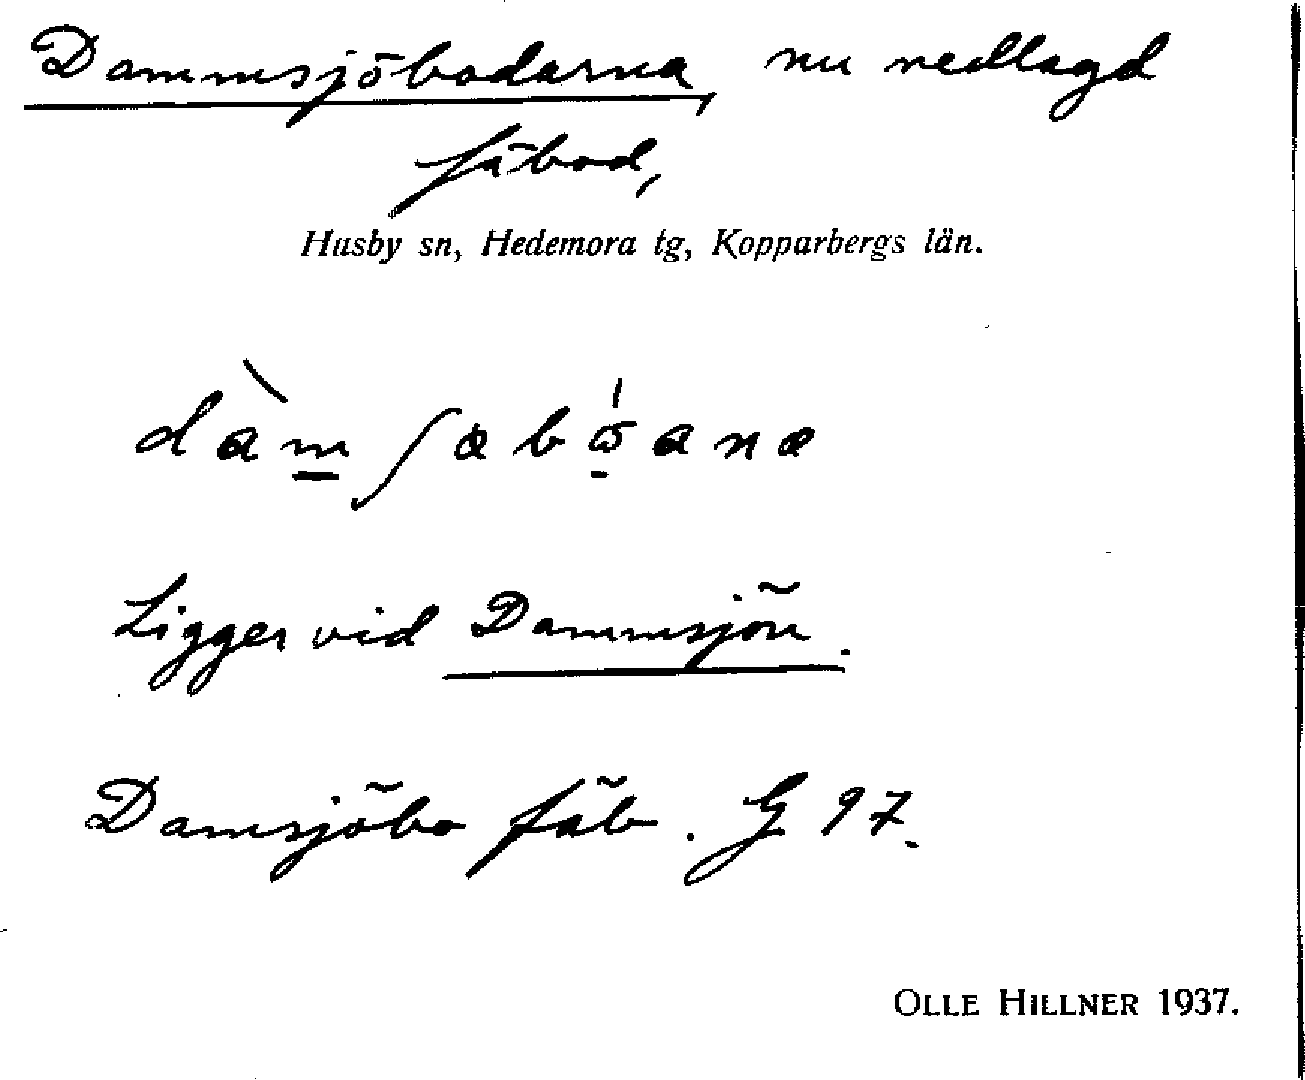 Dammsjöbodarna, nu nedlagd
fäbod,
Husby sn, Hedemora tg, Kopparbergs län.
Ligger vid Dammsjön.
Damsjöbo fäb. G 97.
OLLE HILLNER 1937.